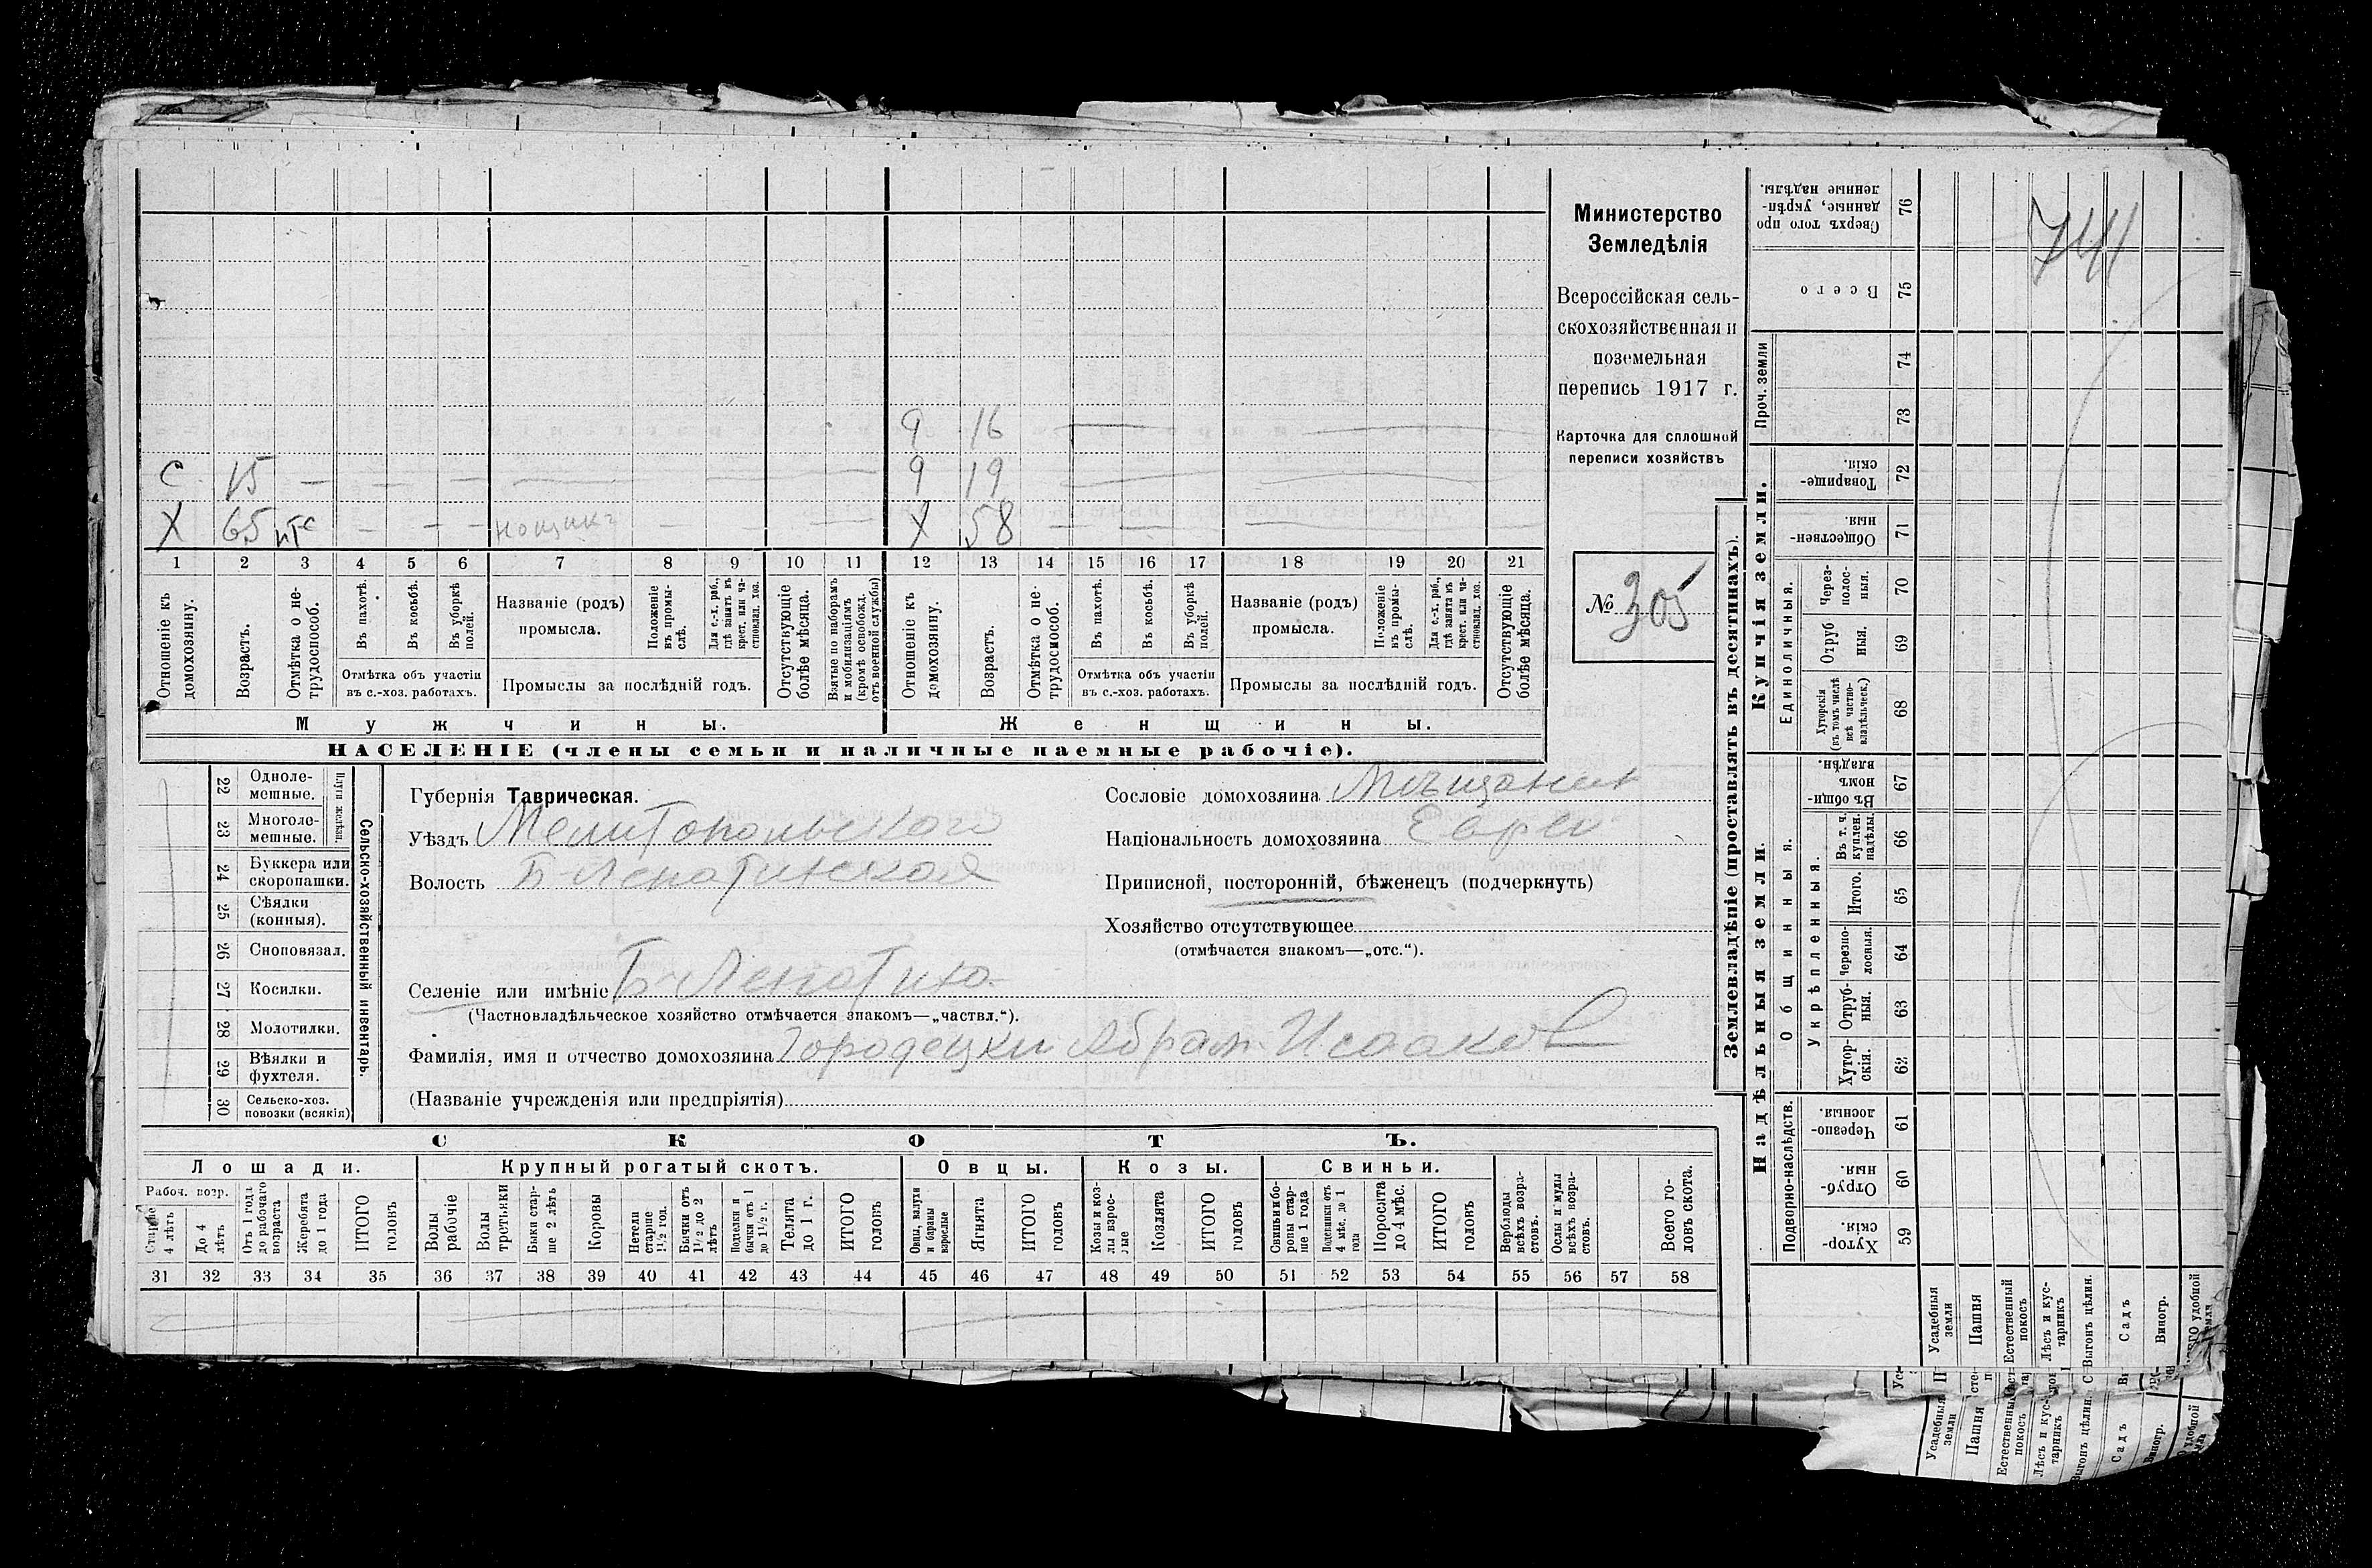 Министерство
Земледѣлія
Всероссійская сель-
скохозяйственная и
поземельная
перепись 1917 г.
Карточка для сплошной
переписи хозяйствъ
№ 305
741
9 16
С 15 — — — — — — 9 19 — —
Х 65 нтс — — — Х 58 — —
1 2 3 4 5 6 7 8 9 10 11 12 13 14 15 16 17 18 19 20 21
Отношеніе къ домохозяину.
Возрастъ.
Отмѣтка о не-трудоспособ.
Въ пахотѣ.
Въ косьбѣ.
Въ уборкѣ полей.
Отмѣтка объ участіи
въ с.-хоз. работахъ.
Названіе (родъ)
промысла.
Положеніе въ промы-слѣ.
Для с.-х. раб., гдѣ занятъ въ крест. или ча-стновлад. хоз.
Промыслы за послѣдній годъ.
Отсутствующіе болѣе мѣсяца.
Взятые по наборамъ и мобилизаціямъ (кромѣ освобожд. отъ военной службы)
Отношеніе къ домохозяину.
Возрастъ.
Отмѣтка о не-трудоспособ.
Въ пахотѣ.
Въ косьбѣ.
Въ уборкѣ полей.
Отмѣтка объ участіи
въ с.-хоз. работахъ.
Названіе (родъ)
промысла.
Положеніе въ промы-слѣ.
Для с.-х. раб., гдѣ занята въ крест. или ча-стновлад. хоз.
Промыслы за послѣдній годъ.
Отсутствующіе болѣе мѣсяца.
Мужчины. Женщины.
НАСЕЛЕНІЕ (члены семьи и наличные наемные рабочіе).
Сельско-хозяйственный инвентарь.
Плуги желѣзн.
22 Одноле-мешные.
23 Многоле-мешные.
24 Буккера или скоропашки.
25 Сѣялки (конныя).
26 Сноповязал.
27 Косилки.
28 Молотилки.
29 Вѣялки и фухтеля.
30 Сельско-хоз. повозки (всякія)
Губернія Таврическая.
Уѣздъ Мелитопольского
Волость Б-Лепатихская
Селеніе или имѣніе Б-Лепатиха
(Частновладѣльческое хозяйство отмѣчается знакомъ—„частвл.“).
Фамилія, имя и отчество домохозяина Городецки Абрам Исааков
(Названіе учрежденія или предпріятія)
Сословіе домохозяина Мѣщанин
Національность домохозяина Еврей
Приписной, посторонній, бѣженецъ (подчеркнуть)
Хозяйство отсутствующее
(отмѣчается знакомъ—„отс.“).
СКОТЪ.
Лошади. Крупный рогатый скотъ. Овцы. Козы. Свиньи.
Рабоч. возр.
Старше 4 лѣтъ
До 4 лѣтъ
Отъ 1 года до рабочаго возраста
Жеребята до 1 года
ИТОГО головъ
Волы рабочіе
Волы третьяки
Быки стар-ше 2 лѣтъ
Коровы
Нетели старше 1½ год.
Бычки отъ 1½ до 2 лѣтъ
Подтелки и бычки отъ 1 до 1½ г.
Телята до 1 г.
ИТОГО головъ
Овцы, валухи и бараны взрослые
Ягнята
ИТОГО головъ
Козы и коз-лы взрос-лые
Козлята
ИТОГО головъ
Свиньи и бо-ровы стар-ше 1 года
Подсвинки отъ 4 мѣс. до 1 года
Поросята до 4 мѣс.
ИТОГО головъ
Верблюды всѣхъ возра-стовъ.
Ослы и мулы всѣхъ возра-стовъ.
Всего го-ловъ скота.
31 32 33 34 35 36 37 38 39 40 41 42 43 44 45 46 47 48 49 50 51 52 53 54 55 56 57 58
Землевладѣніе (проставлять въ десятинахъ).
Купчія земли.
Надѣльныя земли.
Сверхъ того про данные, укрѣп-ленные надѣлы. 76
Всего 75
Проч. земли 74
73
Товарище-скія. 72
Обществен-ныя. 71
Единоличныя.
Через-полос-ныя. 70
Отруб ныя. 69
Хуторскія (въ томъ числѣ всѣ частно-владѣльческ.) 68
Общинныя.
Въ общи-номъ владѣн. 67
Укрѣпленныя.
Въ т. ч. куплен. надѣлы. 66
Итого. 65
Черезпо-лосныя. 64
Отруб-ныя. 63
Хутор-скія. 62
Подворно-наслѣдств.
Черезпо-лосныя 61
Отруб-ныя. 60
Хутор-скія. 59
Усадебныя земли
Пашня
Естественный покосъ
Лѣсъ и кус-тарникъ
Выгонъ цѣлин.
Садъ
Виногр.
удобной земли
Усадебныя земли
Пашня
Естественный покосъ
Лѣсъ и кус-тарникъ
Выгонъ цѣлин.
Садъ
Виногр.
удобной